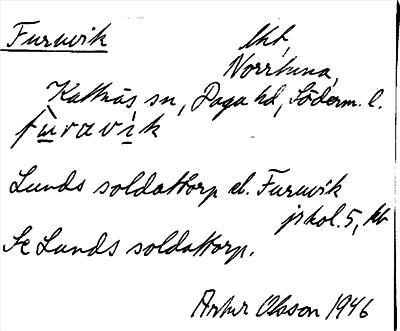 Furuvik lht,
Norrtuna,
Kattnäs sn, Daga hd, Söderm. l.
fùravìk
Lunds soldattorp el. Furuvik
jrkol. 5, kb
Se Lunds soldattorp.
Artur Olsson 1946